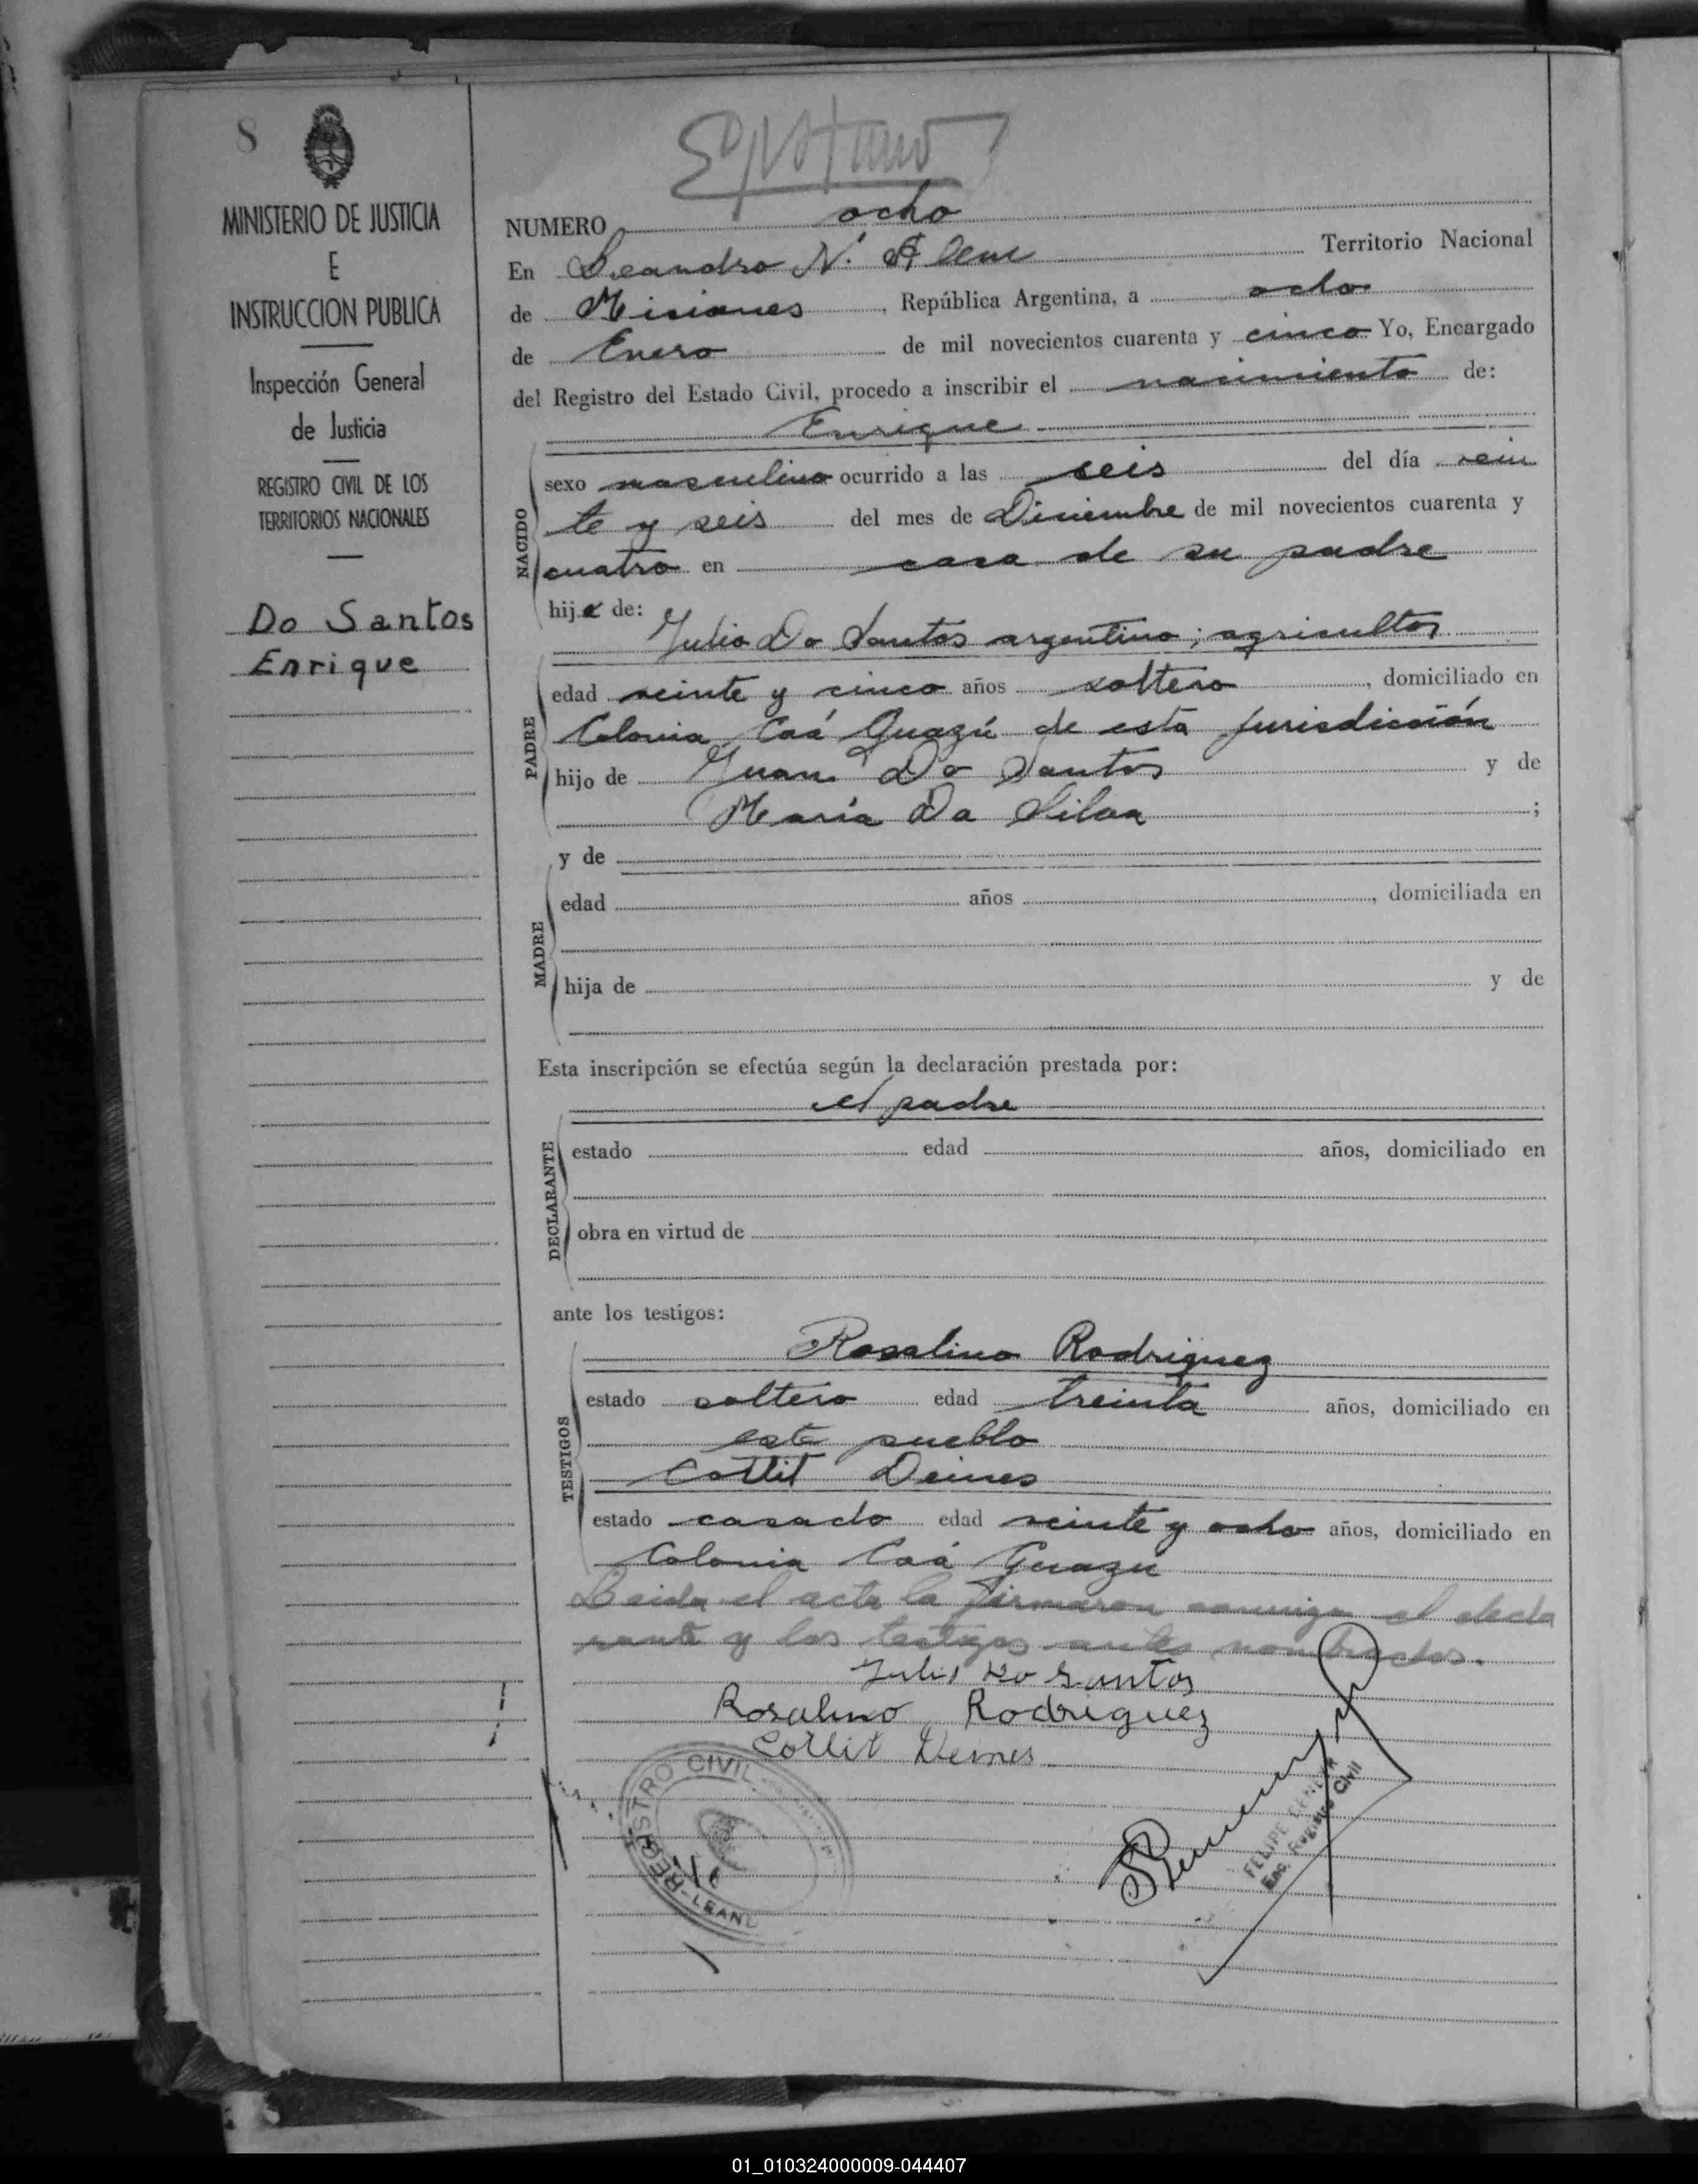 8
MINISTERIO DE JUSTICIA
E
INSTRUCCION PUBLICA
Inspección General
de Justicia
REGISTRO CIVIL DE LOS
TERRITORIOS NACIONALES
Do Santos
Enrique
NUMERO ocho
En Leandro N. Alem Territorio Nacional
de Misiones, República Argentina, a ocho
de Enero de mil novecientos cuarenta y cinco Yo, Encargado
del Registro del Estado Civil, procedo a inscribir el nacimiento de:
Enrique
NACIDO
sexo masculino ocurrido a las seis del día vein
te y seis del mes de Diciembre de mil novecientos cuarenta y
cuatro en casa de su padre
hijo de:
Julio Do Santos argentino; agricultor
PADRE
edad veinte y cinco años soltero, domiciliado en
Colonia Caá Guazú de esta jurisdicción
hijo de Juan Do Santos y de
María Da Silva;
MADRE
y de
edad años, domiciliada en
hija de y de
Esta inscripción se efectúa según la declaración prestada por:
el padre
DECLARANTE
estado edad años, domiciliado en
obra en virtud de
ante los testigos:
TESTIGOS
Rosalino Rodriguez
estado soltero edad treinta años, domiciliado en
este pueblo
Cottit Deines
estado casado edad veinte y ocho años, domiciliado en
Colonia Caá Guazu
Leida el acta la firmaron conmigo el decla
rante y los testigos antes nombrados.
Julio Do Santos
Rosalino Rodriguez
Cottit Deines
REGISTRO CIVIL
LEAND
FELIPE
Enc. Registro Civil
01_010324000009-044407